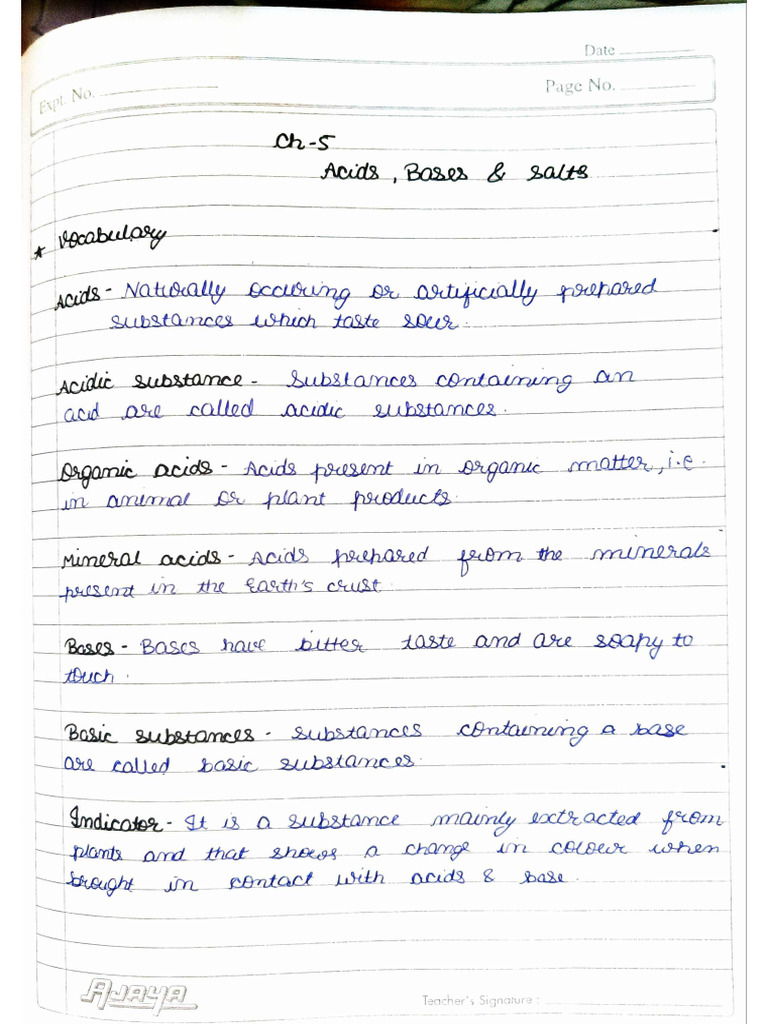 Date
Expt. No.
Page No.
Ch-5
Acids, Bases & Salts
* Vocabulary
Acids - Naturally occuring or artificially prepared
substances which taste sour.
Acidic substance - Substances containing an
acid are called acidic substances.
Organic acids - Acids present in organic matter, i.e.
in animal or plant products.
Mineral acids - Acids prepared from the minerals
present in the Earth's crust.
Bases - Bases have bitter taste and are soapy to
touch.
Basic substances - Substances containing a base
are called basic substances.
Indicator - It is a substance mainly extracted from
plants and that shows a change in colour when
brought in contact with acids & base.
AJAYA
Teacher's Signature :